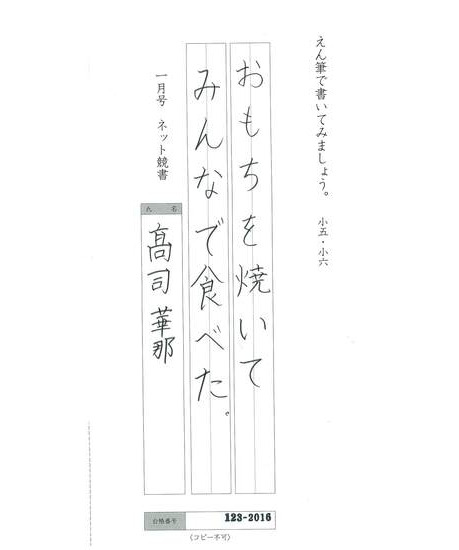 えん筆で書いてみましょう。 小五・小六
おもちを焼いて
みんなで食べた。
一月号 ネット競書
氏名
髙司華那
合格番号
123-2016
(コピー不可)